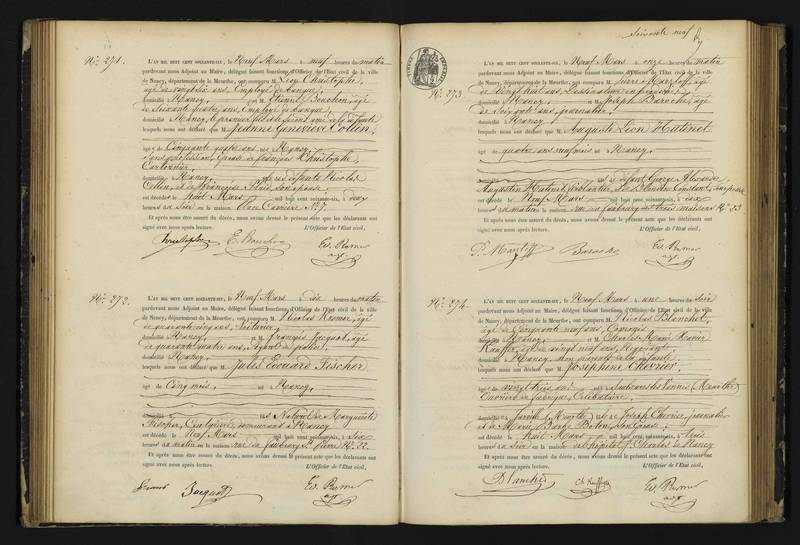 No. 271.
L'AN MIL HUIT CENT SOIXANTE-SIX, le Neuf Mars à neuf heures du matin
pardevant nous Adjoint au Maire, délégué faisant fonctions d'Officier de l'Etat civil de la ville
de Nancy, département de la Meurthe, ont comparu M. Christophe,
Employé de banque,
domicilié à Nancy, et M. Bouchon, âgé
de soixante quatre ans, Employé de banque,
domicilié à Nancy, le premier fils et le second ami de la défunte
lesquels nous ont déclaré que Jeanne Geneviève Collin,
âgé de Cinquante quatre ans né à Nancy,
sans profession, épouse de François Christophe,
domicilié à Nancy, fille des défunts Nicolas
Collin, et de Françoise son épouse
est décédé le huit Mars mil huit cent soixante-six, à deux
heures du soir en la maison No. 7
Et après nous être assuré du décès, nous avons dressé le présent acte que les déclarants ont
signé avec nous après lecture. L'Officier de l'Etat civil,
Christophe E. Bouchon
No. 272.
L'AN MIL HUIT CENT SOIXANTE-SIX, le Neuf Mars à dix heures du matin
pardevant nous Adjoint au Maire, délégué faisant fonctions d'Officier de l'Etat civil de la ville
de Nancy, département de la Meurthe, ont comparu M. Nicolas âgé
de quarante cinq ans,
domicilié à Nancy, et M. François Jacquot, âgé
de quarante quatre ans, Agent de police,
domicilié à Nancy,
lesquels nous ont déclaré que Jules Edouard Fischer
âgé de Cinq mois, né à Nancy,
fils Naturel de Marguerite
Fischer, demeurant à Nancy
est décédé le Neuf Mars mil huit cent soixante-six, à six
heures du matin en la maison rue du faubourg St. Pierre No.
Et après nous être assuré du décès, nous avons dressé le présent acte que les déclarants ont
signé avec nous après lecture. L'Officier de l'Etat civil,
Jacquot
Soixante neuf
No. 273
L'AN MIL HUIT CENT SOIXANTE-SIX, le Neuf Mars à onze heures du matin
pardevant nous Adjoint au Maire, délégué faisant fonctions d'Officier de l'Etat civil de la ville
de Nancy, département de la Meurthe, ont comparu M. Pierre âgé
de vingt huit ans, Dessinateur
domicilié à Nancy, et M. Joseph Baroche, âgé
de soixante ans, journalier,
domicilié à Nancy
lesquels nous ont déclaré que Auguste Léon Hatinet
âgé de quatre ans neuf mois né à Nancy,
fils de défunt George Alexandre
Augustin Hatinet, et de Constant, son épouse
est décédé le Neuf Mars mil huit cent soixante-six, à dix
heures du matin en la maison rue du faubourg des trois maisons No. 53
Et après nous être assuré du décès, nous avons dressé le présent acte que les déclarants ont
signé avec nous après lecture. L'Officier de l'Etat civil,
Baroche
No. 274.
L'AN MIL HUIT CENT SOIXANTE-SIX, le Neuf Mars à une heure du soir
pardevant nous Adjoint au Maire, délégué faisant fonctions d'Officier de l'Etat civil de la ville
de Nancy, département de la Meurthe, ont comparu M. Nicolas Blanchet,
âgé de Cinquante neuf ans, Concierge
domicilié à Nancy, et M. Charles Marie Xavier
Kauffer, âgé de vingt neuf ans, Négociant,
domicilié à Nancy, non parents de la défunte
lesquels nous ont déclaré que Joséphine Chevrier,
âgé de vingt trois ans né à (Meurthe)
Ouvrière de fabrique, Célibataire
domicilié à Jarville (Meurthe) fille de Joseph Chevrier, journalier
et de Marie Barbe son épouse
est décédé le huit Mars mil huit cent soixante-six, à trois
heures du soir en la maison de l'hôpital St. Charles de Nancy
Et après nous être assuré du décès, nous avons dressé le présent acte que les déclarants ont
signé avec nous après lecture. L'Officier de l'Etat civil,
Blanchet